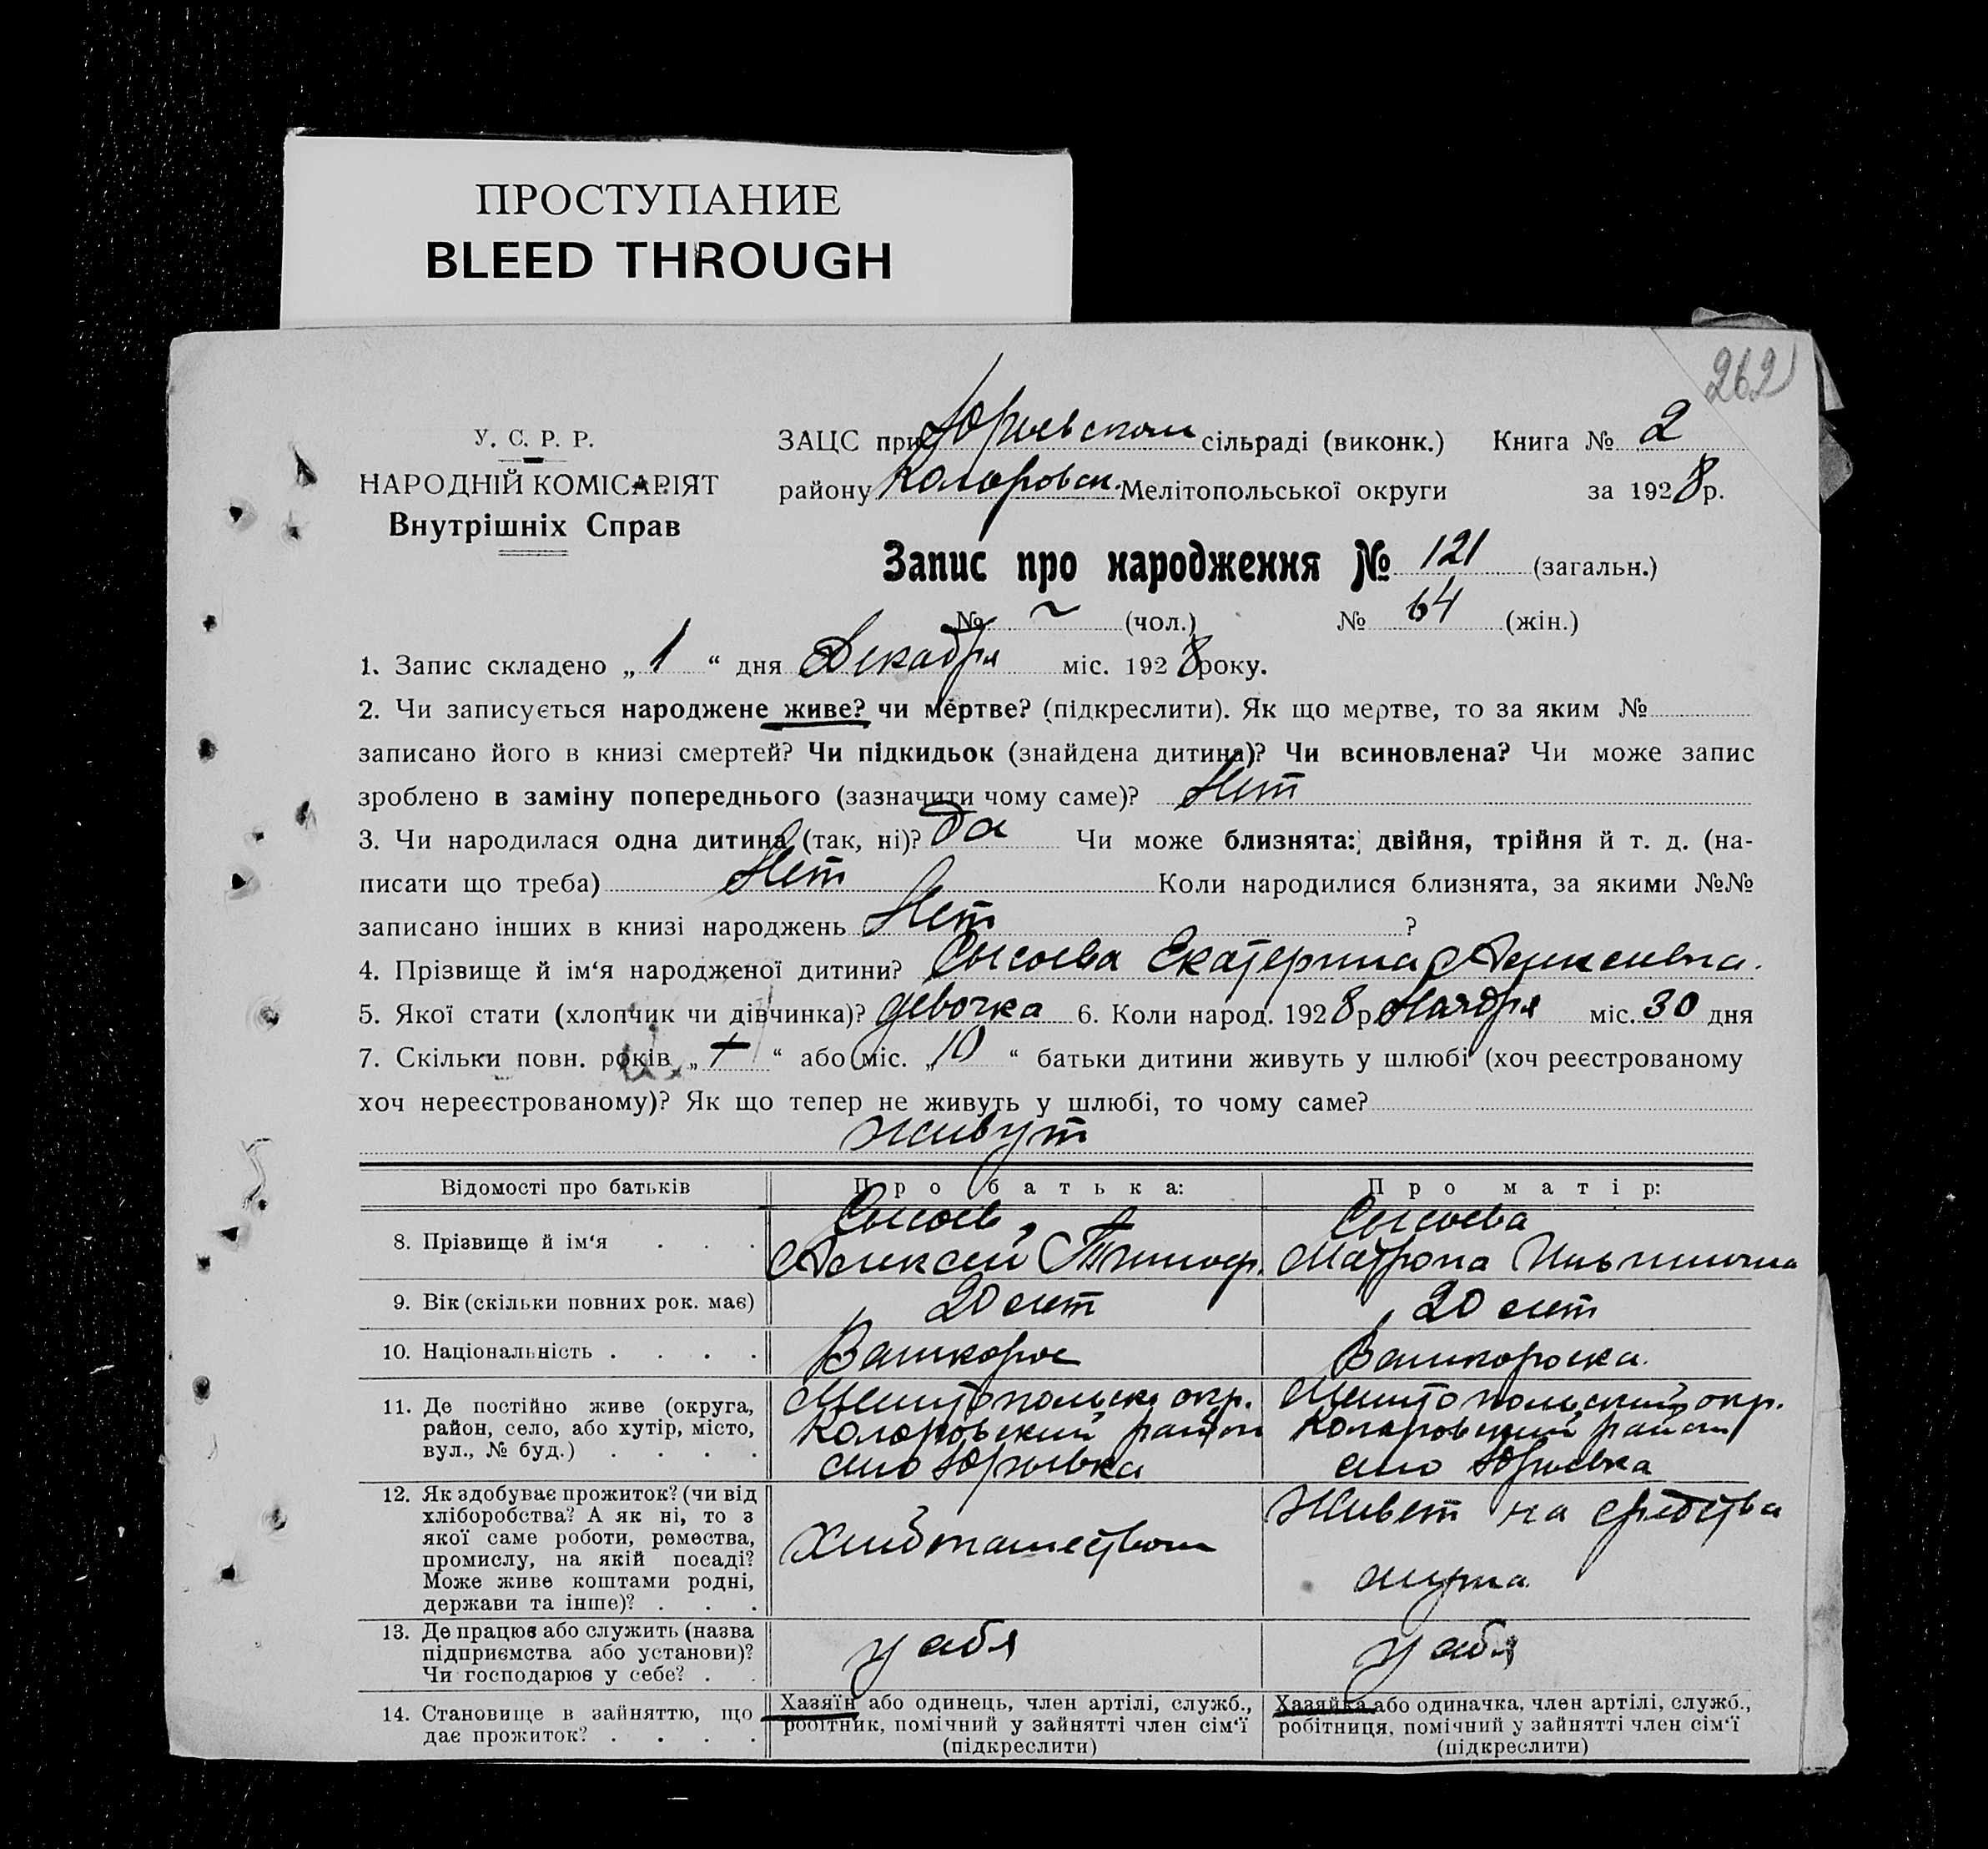 ПРОСТУПАНИЕ
BLEED THROUGH
262
У. С. Р. Р.
НАРОДНІЙ КОМІСАРІЯТ
Внутрішніх Справ
ЗАЦС при Юрьевском сільраді (виконк.) Книга № 2
району Коларовск. Мелітопольської округи за 1928 р.
Запис про народження № 121 (загальн.)
№ ~ (чол.) № 64 (жін.)
1. Запис складено „ 1 “ дня Декабря міс. 1928 року.
2. Чи записується народжене живе? чи мертве? (підкреслити). Як що мертве, то за яким №
записано його в книзі смертей? Чи підкидьок (знайдена дитина)? Чи всиновлена? Чи може запис
зроблено в заміну попереднього (зазначити чому саме)? Нет
3. Чи народилася одна дитина (так, ні)? Да Чи може близнята: двійня, трійня й т. д. (на-
писати що треба) Нет Коли народилися близнята, за якими №№
записано інших в книзі народжень Нет ?
4. Прізвище й ім‘я народженої дитини? Сысоева Екатерина Алексеевна.
5. Якої стати (хлопчик чи дівчинка)? девочка 6. Коли народ. 1928 р. Ноября міс. 30 дня
7. Скільки повн. років „ “ або міс. „ 10 “ батьки дитини живуть у шлюбі (хоч реєстрованому
хоч нереєстрованому)? Як що тепер не живуть у шлюбі, то чому саме?
живут
Відомості про батьків Про батька: Про матір:
8. Прізвище й ім‘я . . . Сысоев Алексей Тимоф. Сысоева Матрона Ильинична
9. Вік (скільки повних рок. має) 20 лет 20 лет
10. Національність . . . . Великорос Великороска.
11. Де постійно живе (округа,
район, село, або хутір, місто,
вул., № буд.) . . . .
Мелитопольск. окр.
Коларовский район
село Юрьевка
Мелитопольский окр.
Коларовский район
село Юрьевка
12. Як здобуває прожиток? (чи від
хліборобства? А як ні, то з
якої саме роботи, ремества,
промислу, на якій посаді?
Може живе коштами родні,
держави та інше)? . . .
Хлебопашеством
Живет на средства
мужа.
13. Де працює або служить (назва
підприємства або установи)?
Чи господарює у себе? . .
у себя
у себя
14. Становище в зайняттю, що
дає прожиток? . . . .
Хазяїн або одинець, член артілі, служб.,
робітник, помічний у зайнятті член сім‘ї
(підкреслити)
Хазяйка або одиначка, член артілі, служб.,
робітниця, помічний у зайнятті член сім‘ї
(підкреслити)